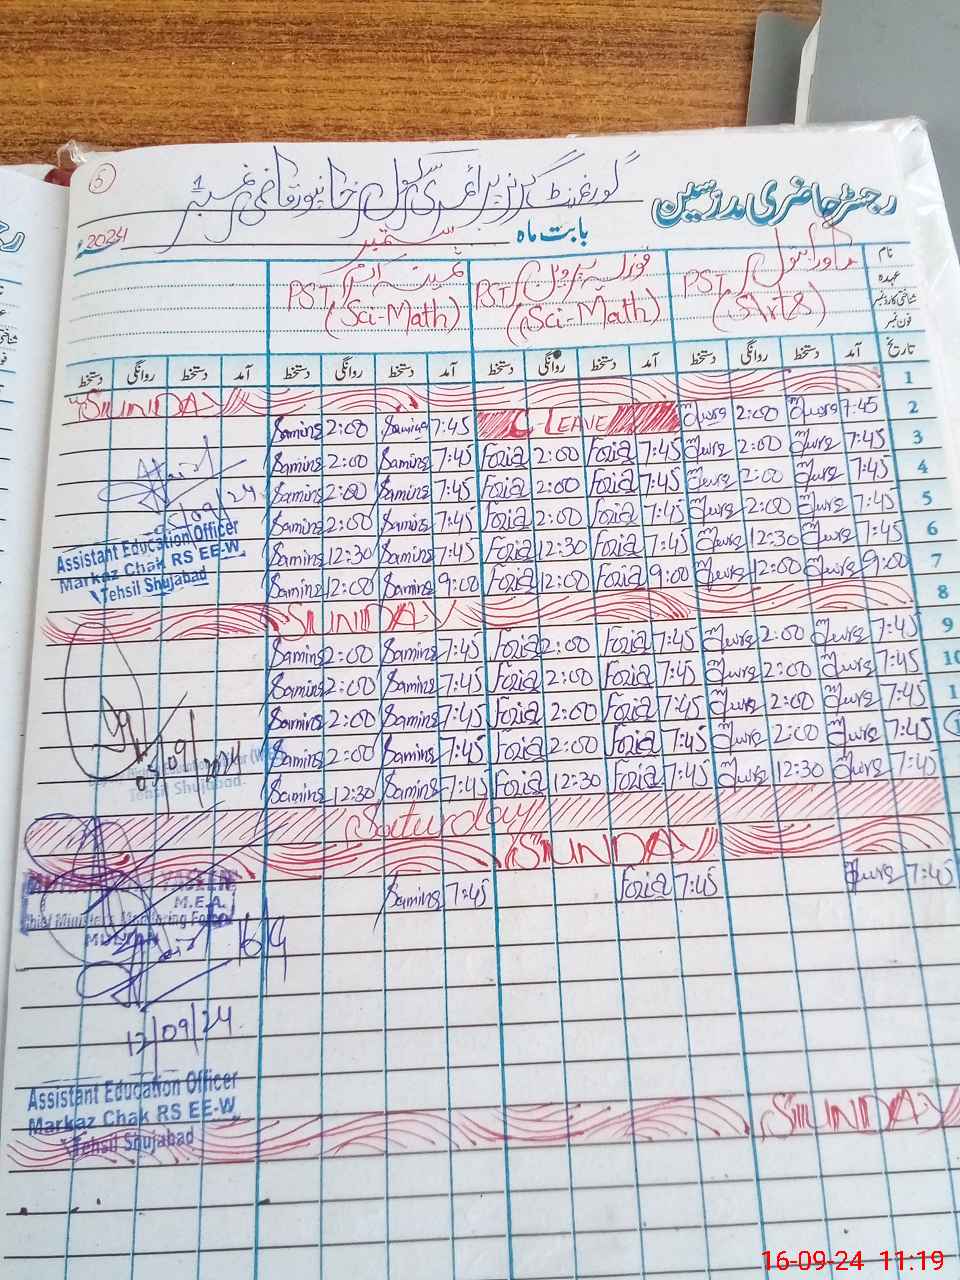 5
گورنمنٹ گرلز پرائمری سکول خانپور قاضی نمبر 1
رجسٹر حاضری مدرسین
2024 ء
بابت ماہ ستمبر
نام
عہدہ
شناختی کارڈ نمبر
فون نمبر
PST PST PST
(Sci-Math) (Sci-Math) (Arts)
تاریخ آمد دستخط روانگی دستخط آمد دستخط روانگی دستخط آمد دستخط روانگی دستخط آمد دستخط روانگی دستخط
SUNDAY 1
Samina 2:00 Samina 7:45 C-LEAVE 2:00 7:45 2
Samina 2:00 Samina 7:45 Fozia 2:00 Fozia 7:45 2:00 7:45 3
Samina 2:00 Samina 7:45 Fozia 2:00 Fozia 7:45 2:00 7:45 4
Samina 2:00 Samina 7:45 Fozia 2:00 Fozia 7:45 2:00 7:45 5
Samina 12:30 Samina 7:45 Fozia 12:30 Fozia 7:45 12:30 7:45 6
Samina 12:00 Samina 9:00 Fozia 12:00 Fozia 9:00 12:00 9:00 7
Assistant Education Officer
Markaz Chak RS EE-W
Tehsil Shujabad
SUNDAY 8
Samina 2:00 Samina 7:45 Fozia 2:00 Fozia 7:45 2:00 7:45 9
Samina 2:00 Samina 7:45 Fozia 2:00 Fozia 7:45 2:00 7:45 10
Samina 2:00 Samina 7:45 Fozia 2:00 Fozia 7:45 2:00 7:45 1
Samina 2:00 Samina 7:45 Fozia 2:00 Fozia 7:45 2:00 7:45
Samina 12:30 Samina 7:45 Fozia 12:30 Fozia 7:45 12:30 7:45
Tehsil Shujabad
Saturday
SUNDAY
Samina 7:45 Fozia 7:45 7:45
YASEEN
M.E.A.
Chief Minister's Monitoring Force
MULTAN
16/9
12/09/24
Assistant Education Officer
Markaz Chak RS EE-W
Tehsil Shujabad
SUNDAY
16-09-24 11:19